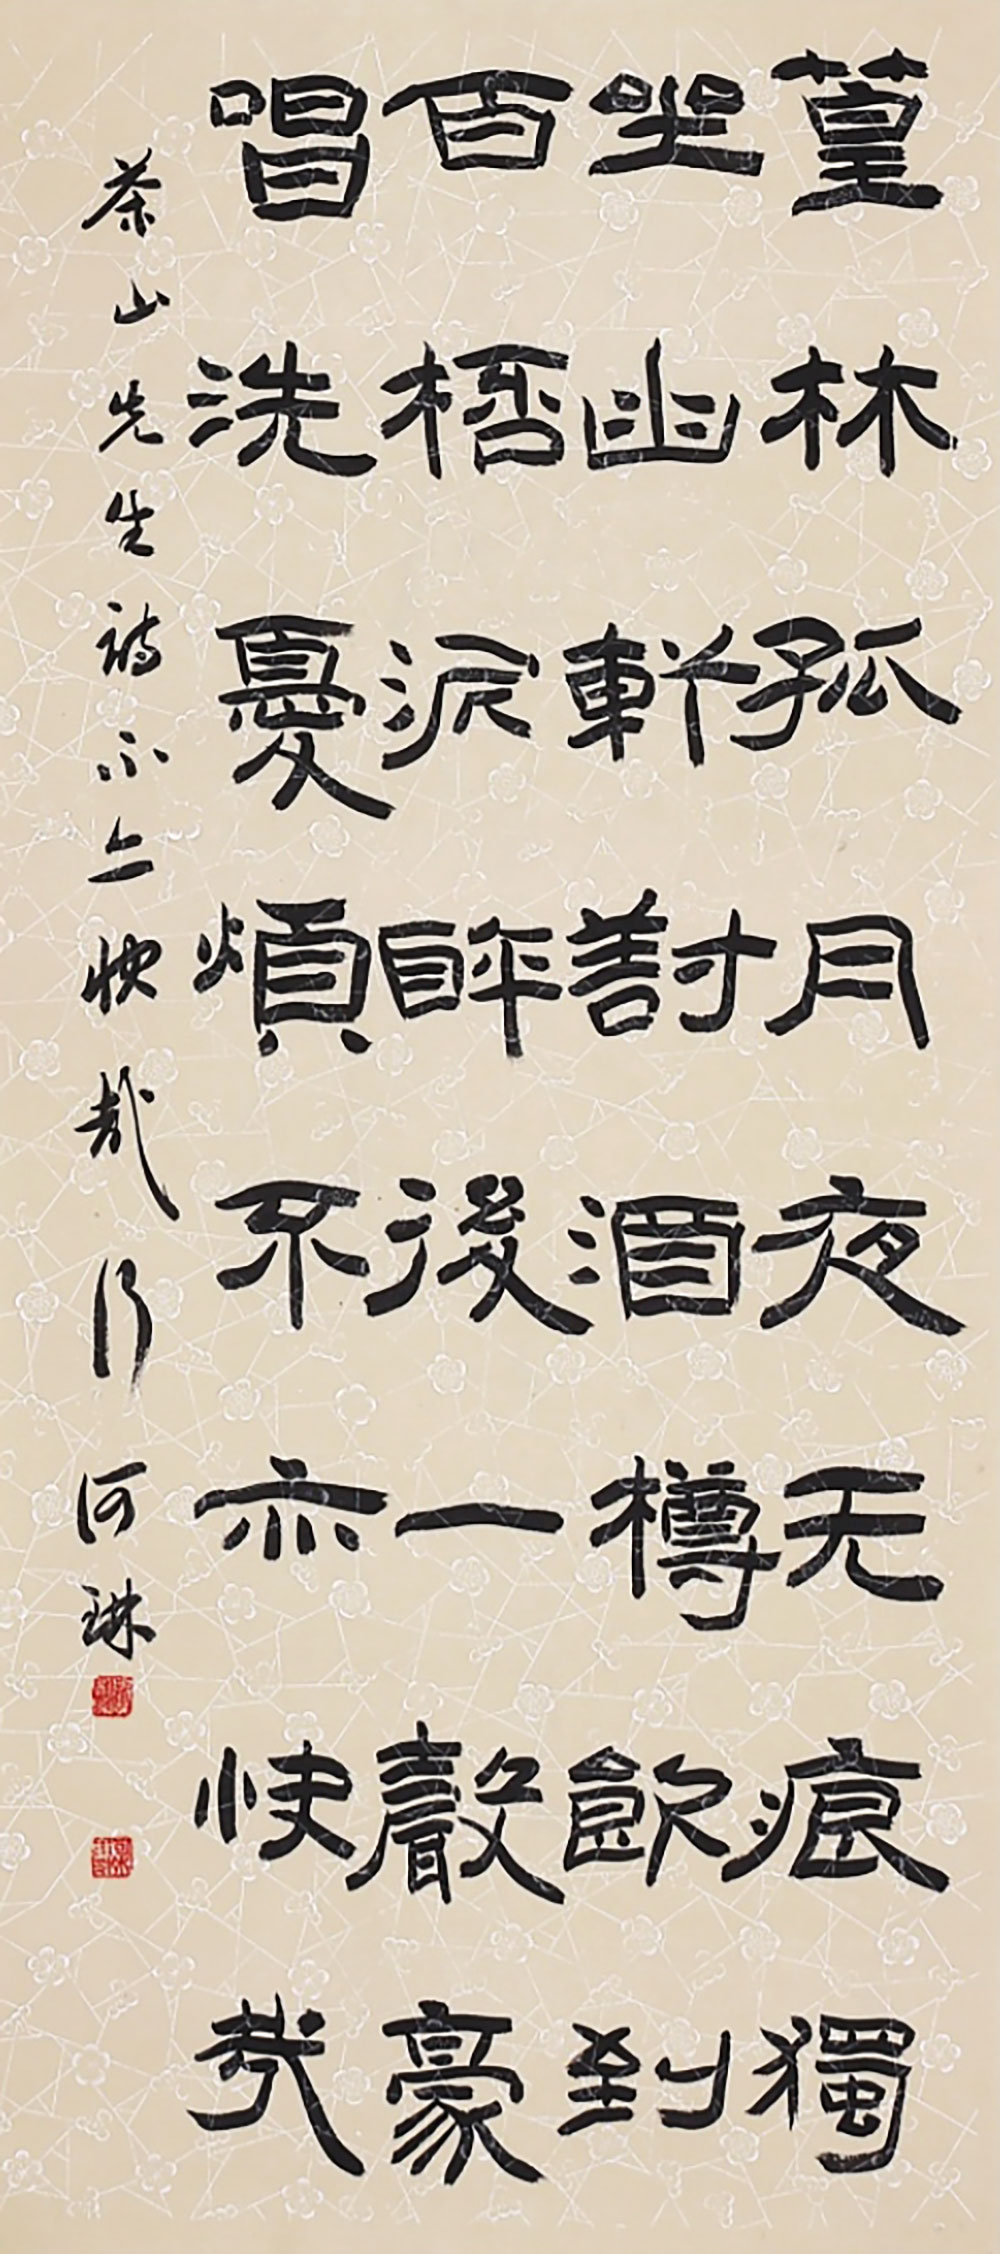 篁林孤月夜无痕獨
坐幽軒討酒樽飲到
百桮泥醉後一聲豪
唱洗憂煩不亦快哉
茶山先生詩不亦快哉行 河琳